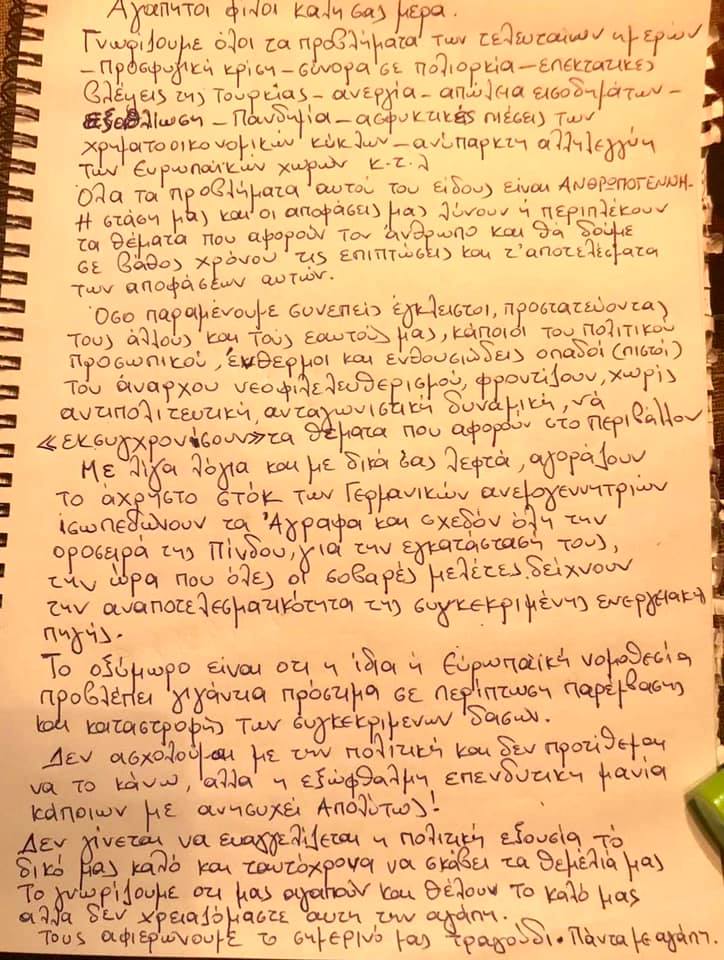 Αγαπητοί φίλοι καλή σας μέρα.
Γνωρίζουμε όλοι τα προβλήματα των τελευταίων ημερών
– Προσφυγική κρίση – σύνορα σε πολιορκία – επεκτατικές
βλέψεις της Τουρκίας – ανεργία – απώλεια εισοδημάτων –
εξαθλίωση – Πανδημία – ασφυκτικές πιέσεις των
χρηματοοικονομικών κύκλων – ανύπαρκτη αλληλεγγύη
των Ευρωπαϊκών χωρών κ.τ.λ
Όλα τα προβλήματα αυτού του είδους είναι ΑΝΘΡΩΠΟΓΕΝΝΗ.
Η στάση μας και οι αποφάσεις μας λύνουν ή περιπλέκουν
τα θέματα που αφορούν τον άνθρωπο και θά δούμε
σε βάθος χρόνου τις επιπτώσεις και τ'αποτελέσματα
των αποφάσεων αυτών.
Όσο παραμένουμε συνεπείς έγκλειστοι, προστατεύοντας
τους άλλους και τους εαυτούς μας, κάποιοι του πολιτικού
προσωπικού, ένθερμοι και ενθουσιώδεις οπαδοί (πιστοί)
του άναρχου νεοφιλελευθερισμού, φροντίζουν, χωρίς
αντιπολιτευτική, ανταγωνιστική δυναμική, νά
«εκσυγχρονίσουν» τα θέματα που αφορούν στο περιβάλλον
Με λίγα λόγια και με δικά σας λεφτά, αγοράζουν
το άχρηστο στόκ των Γερμανικών ανεμογεννητριών
ισωπεδώνουν τα Άγραφα και σχεδόν όλη την
οροσειρά της Πίνδου, για την εγκατάστασή τους,
την ώρα που όλες οι σοβαρές μελέτες δείχνουν
την αναποτελεσματικότητα της συγκεκριμένης ενεργειακή
πηγής.
Το οξύμωρο είναι οτι η ίδια ή Ευρωπαϊκή νομοθεσία
προβλέπει γιγάντια πρόστιμα σε περίπτωση παρέμβασης
και καταστροφής των συγκεκριμενων δασων.
Δεν ασχολούμαι με την πολιτική και δεν προτίθεμαι
να το κάνω, αλλα η εξώφθαλμη επενδυτικη μανία
κάποιων με ανησυχεί Απολύτως!
Δεν γίνεται να ευαγγελίζεται η πολιτική εξουσία τό
δικό μας καλό και ταυτόχρονα να σκάβει τα θεμέλιά μας
Το γνωρίζουμε οτι μας αγαπούν και θέλουν το καλό μας
αλλα δεν χρειαζόμαστε αυτη την αγάπη.
Τους αφιερώνουμε το σημερινό μας τραγούδι. Πάντα με αγάπη.